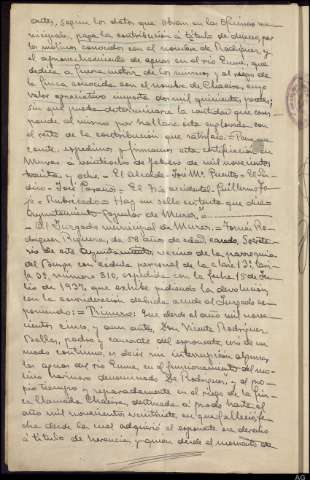 ente, según los datos que obran en la Oficina mu-
nicipal, paga la contribución a título de dueño, por
los molinos conocidos con el nombre de Rodríguez y
el aprovechamiento de aguas en el río Tines, que
dedica a fuerza motriz de los mismos y al riego de
la finca conocida con el nombre de Chaeira, cuyo
valor aproximativo importa dos mil quinientas pesetas;
sin que pueda determinarse la cantidad que corres-
ponde al mismo por hallarse esta englobada con
el resto de la contribución que satisface.= Para que
conste, expedimos y firmamos esta certificación en
Muros a veintiocho de febrero de mil novecientos
treinta y ocho.= El Alcalde = José Mª Fuertes =. El Sín-
dico = José . El Srio accidental = Guillermo
= Rubricado = Hay un sello en tinta que dice =
Ayuntamiento Popular de Muros".=
"Al Juzgado municipal de Muros.= Tomás Ro-
dríguez , de 58 años de edad, casado, Secreta-
rio de este Ayuntamiento, vecino de la parroquia
de con cédula personal de la clase 12ª, tari-
fa 3ª, número 310, expedida con la fecha 15 de Ju-
lio de 1937, que exhibe pidiendo la devolución,
con la consideración debida acude al Juzgado ex-
poniendo:= Primero: Que desde el año mil nove-
cientos cinco, y aun antes, Don Vicente Rodríguez
, padre y causante del exponente, usó de un
modo continuo, es decir sin interrupción alguna,
las aguas del río Tines, en el funcionamiento del mo-
lino harinero denominado de Rodríguez, y al pro-
pio tiempo y separadamente en el riego de la fin-
ca llamada Chaeira, destinada a prado hasta el
año mil novecientos veintisiete, en que falleció, fe-
cha desde la cual adquirió el exponente ese derecho
a título de herencia, y quien desde el momento de